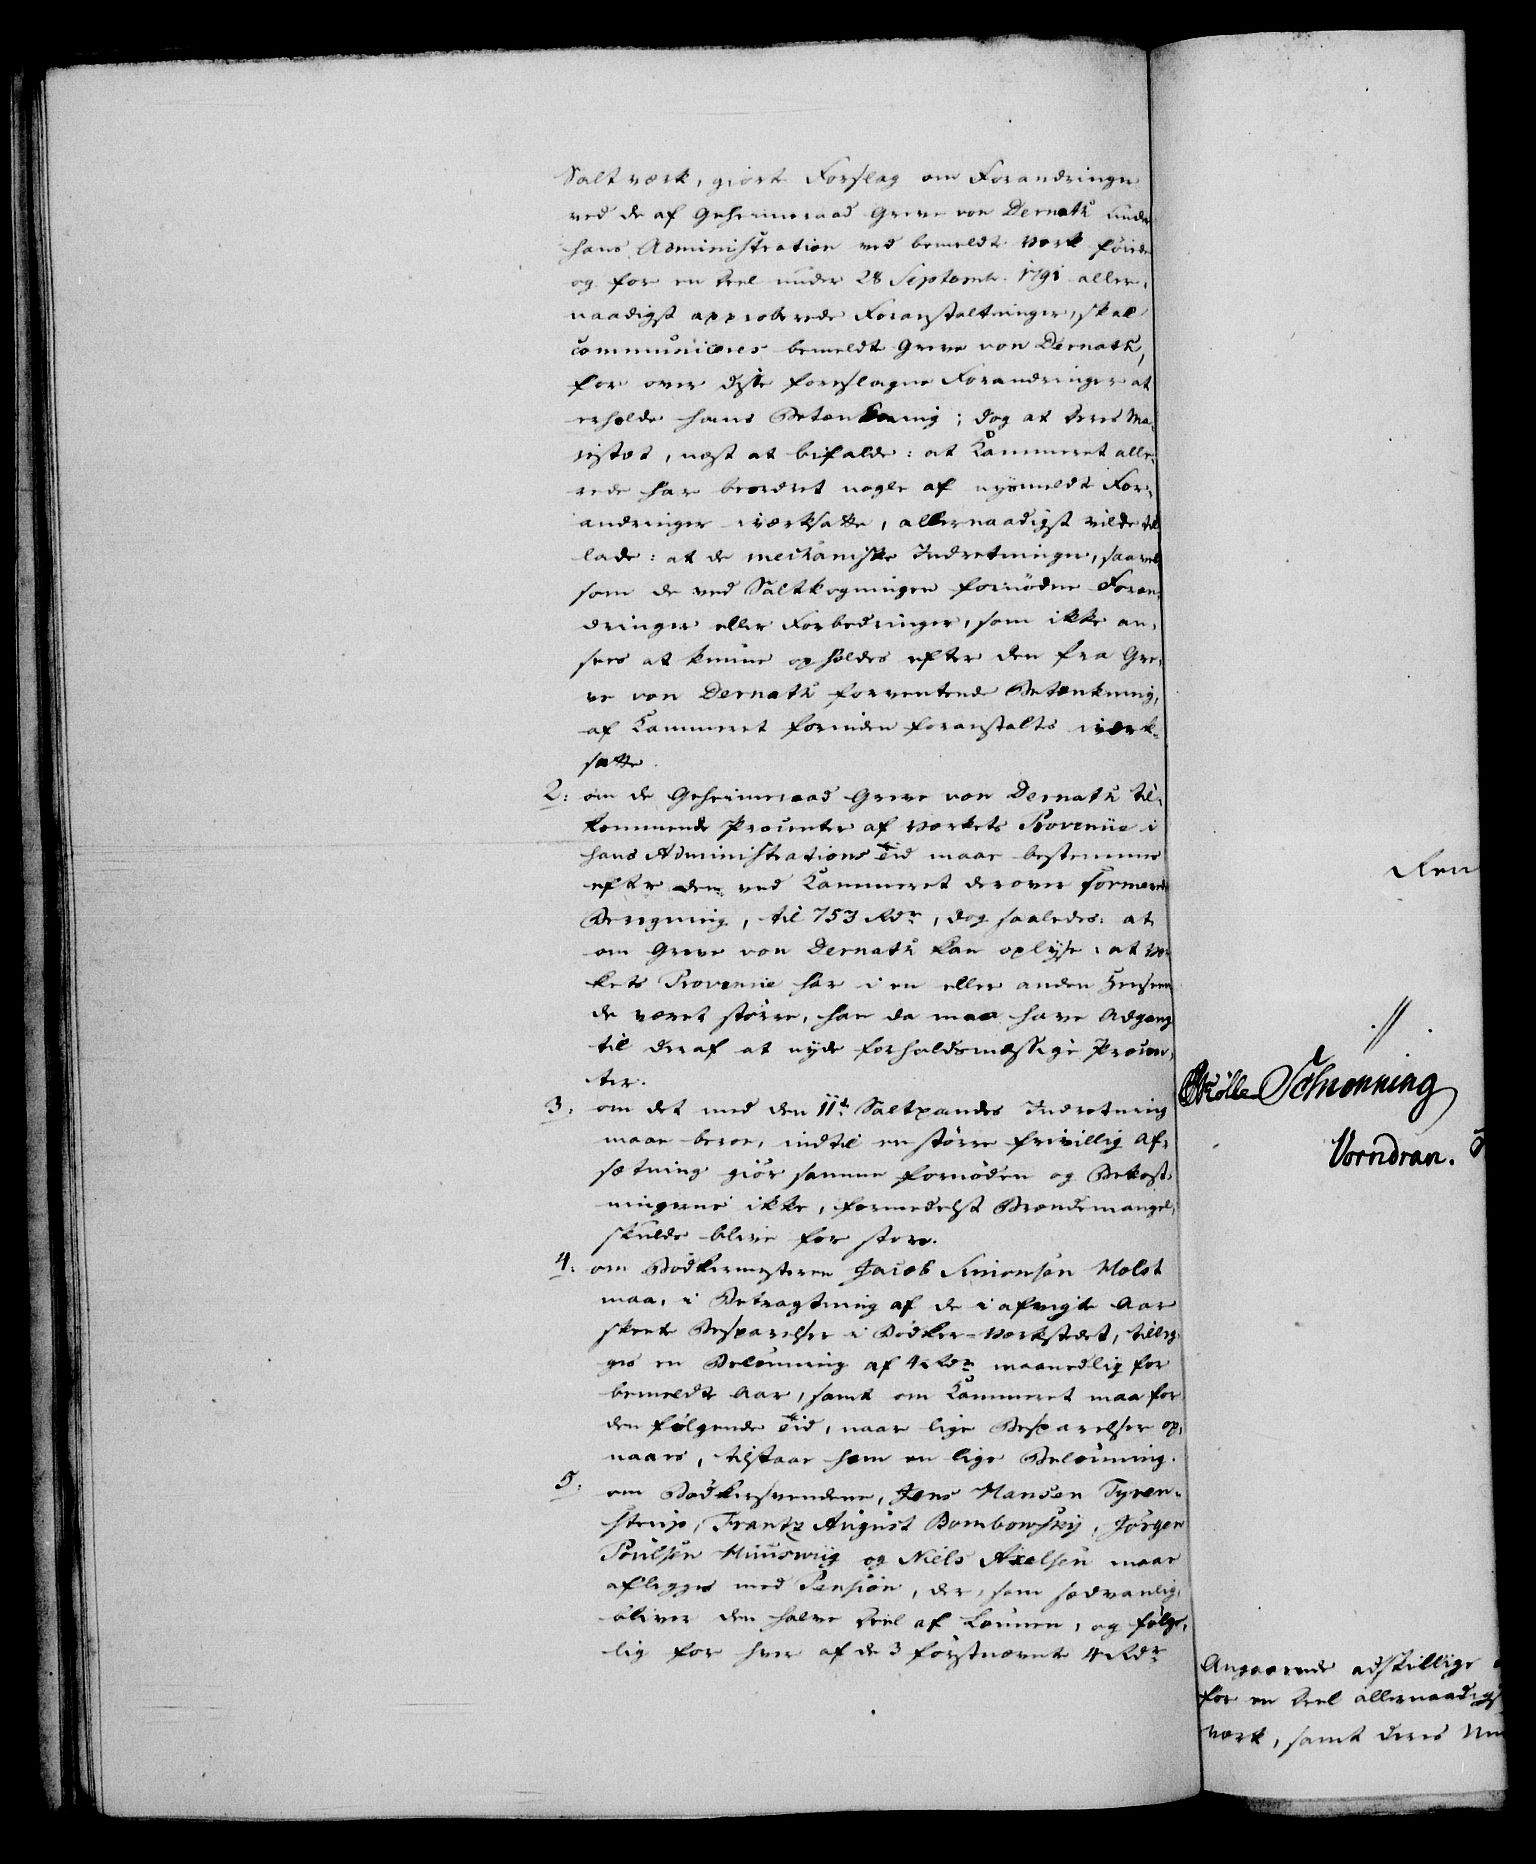 Saltværk, giort Forslag om Forandringer
ved de af Geheimeraad Greve von Dernath under
hans Administration ved bemeldt Værk föiede
og for en Deel under 28 Septembr. 1791 aller¬
naadigst approberede Foranstaltninger, skal
communiceres bemeldte Greve von Dernath,
for over disse foreslagne Forandringer at
erholde hans Betænkning; dog at Deres Ma¬
jestæt, næst at bifalde: at Kammeret alle¬
rede har beordret nogle af nysmeldte For¬
andringer iværksatte, allernaadigst vilde til
lade: at de mechaniske Indretninger, saavel
som de ved Saltkogningen fornödne Foran¬
dringer eller Forbedringer, som ikke an¬
sees at kunne opholdes efter den fra Gre¬
ve von Dernath forventende Betænkning,
af Kammeret forinden foranstaltes iværk¬
satte.
2: om de Geheimeraad Greve von Dernath til¬
kommende Procenter af Værkets Provenüe i
hans Administrations Tid maae bestemmes
efter den ved Kammeret derover formerede
Beregning, til 753 Rdr, dog saaledes: at
om Greve von Dernath kan oplyse: at Vær
kets Provenüe har i en eller anden Henseen
de været större, han da maa have Adgang
til deraf at nyde forholdsmæssige Procen¬
ter.
3: om det med den 11te Saltpandes Indretning
maae beroe, indtil en större frivillig Af¬
sætning giör samme fornöden og Bekost¬
ningerne ikke, formedelst Brændemangel,
skulde blive for store.
4: om Bödkermesteren Jacob Simonsen Holst
maa, i Betragtning af de i afvigte Aar
skeete Besparelser i Bödker-Værkstedet, tillæg¬
ges en Belönning af 4 Rdr maanedlig for
bemeldte Aar, samt om Kammeret maa for
den fölgende Tid, naar lige Besparelser op¬
naaes, tilstaae ham en lige Belönning.
5: om Bödkersvendene, Jens Hansen Tyren¬
strup, Frantz August Bombowsky, Jörgen
Poulsen Huuswiig og Niels Axelsen maae
aflægges med Pension, der, som sædvanlig,
bliver den halve Deel af Lönnen, og fölge¬
lig for hver af de 3 förstnævnte 4 Rdr
Ren
Schönning
Vorndran.
Angaaende adskillige
for en Deel allernaadigst
værk, samt deres